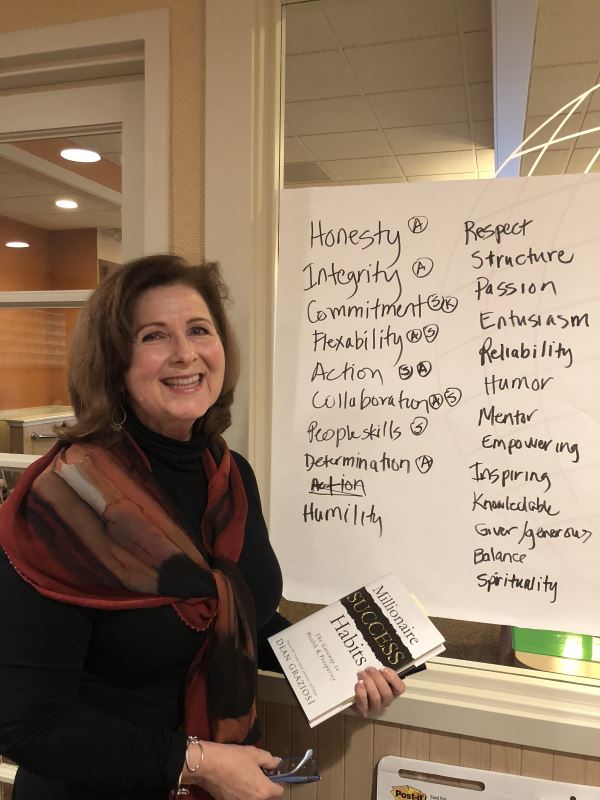 Honesty A
Integrity A
Commitment S K
Flexability A S
Action S A
Collaboration A S
People skills S
Determination A
Action
Humility
Respect
Structure
Passion
Entusiasm
Reliability
Humor
Mentor
Empowering
Inspiring
Knowledable
Giver/generous
Balance
Spirituality
Millionaire
SUCCESS
Habits
The Gateway to
Wealth & Prosperity
DEAN GRAZIOSI
Post-it